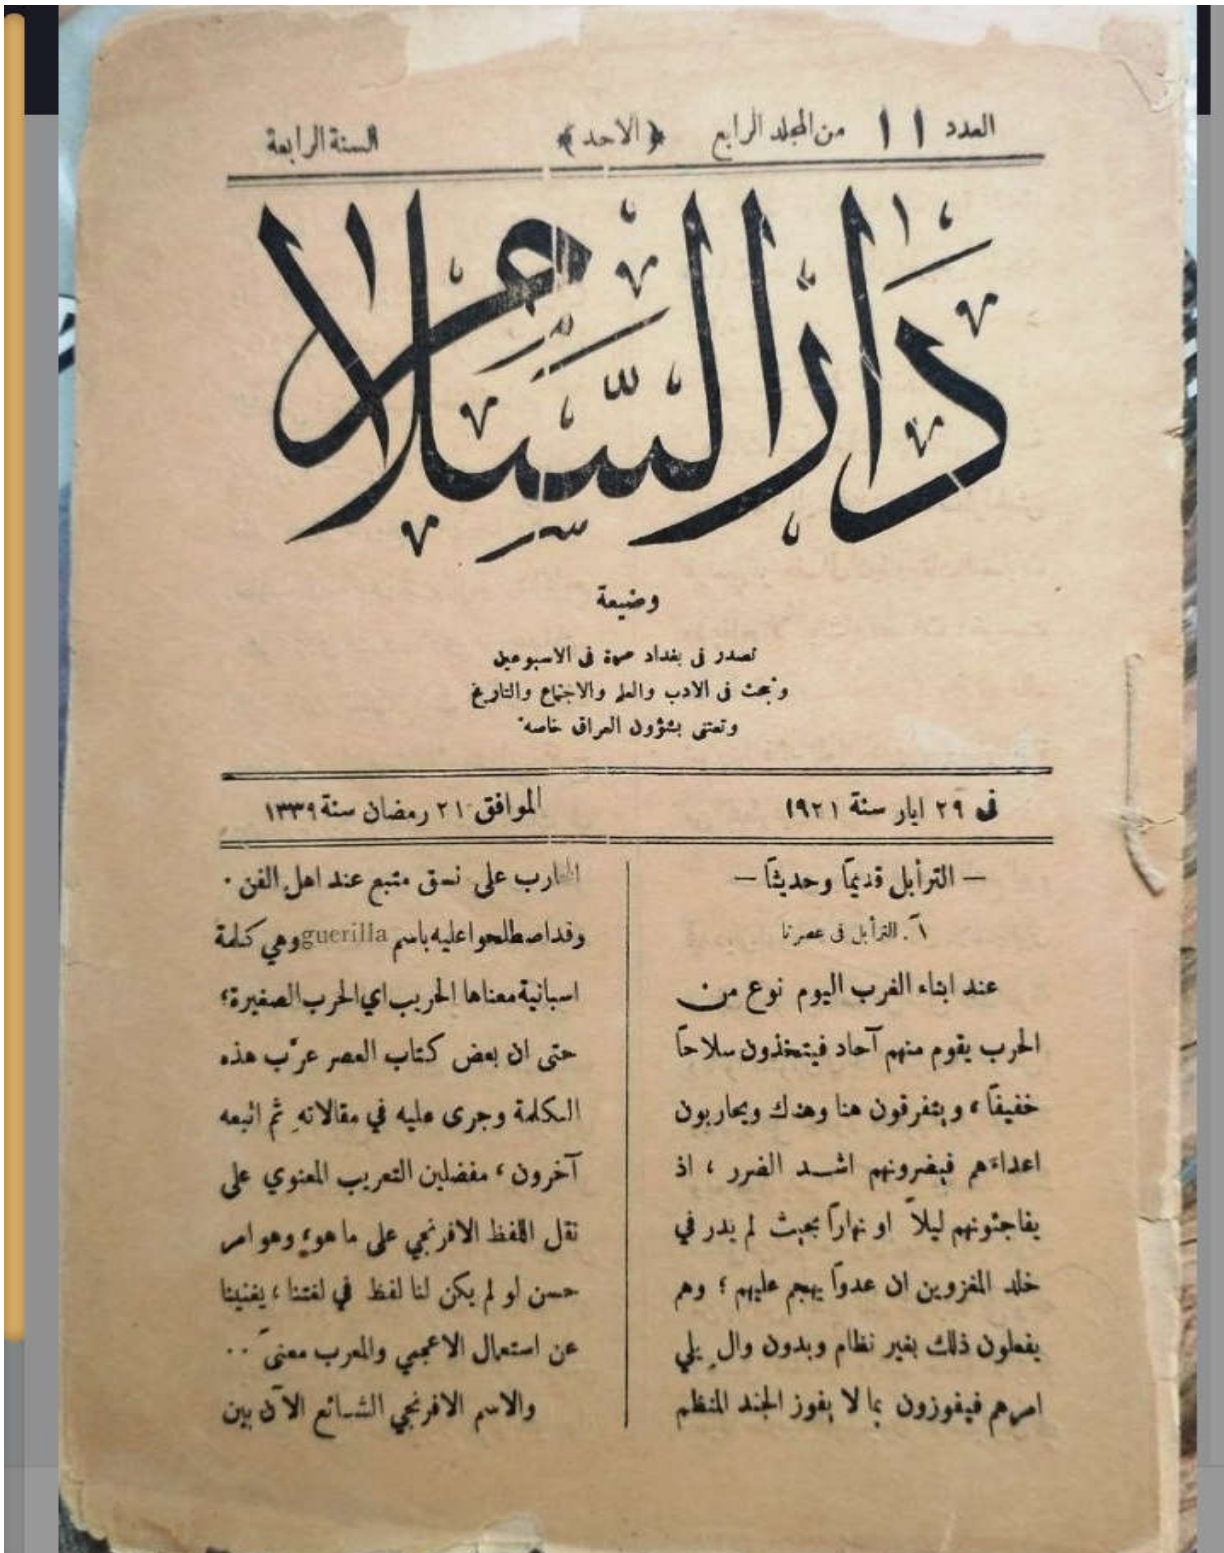 العدد ١١ من المجلد الرابع ﴿الاحد﴾ السنة الرابعة
دَارُ السَّلَامِ
وضيعة
تصدر فى بغداد مرة فى الاسبوعين
وتبحث فى الادب والعلم والاجتماع والتاريخ
وتعتنى بشؤون العراق خاصة
فى ٢٩ ايار سنة ١٩٢١
الموافق ٢١ رمضان سنة ١٣٣٩
— الترأبل قديمًا وحديثًا —
آ. الترأبل فى عصرنا
عند ابناء الغرب اليوم نوع من
الحرب يقوم منهم آحاد فيتخذون سلاحاً
خفيفاً، ويتفرقون هنا وهناك ويحاربون
اعداءَهم فيضرونهم اشد الضرر، اذ
يفاجئونهم ليلاً او نهاراً بحيث لم يدر في
خلد المغزوين ان عدواً يهجم عليهم؛ وهم
يفعلون ذلك بغير نظام وبدون والٍ يلي
امرهم فيفوزون بما لا يفوز الجند المنظم
المحارب على نسق متبع عند اهل الفن.
وقد اصطلحوا عليه باسم guerilla وهي كلمة
اسبانية معناها الحريب اي الحرب الصغيرة؛
حتى ان بعض كتاب العصر عرّب هذه
الكلمة وجرى عليه في مقالاتهِ ثم اتبعه
آخرون، مفضلين التعريب المعنوي على
نقل اللفظ الافرنجي على ما هو، وهو امر
حسن لو لم يكن لنا لفظ في لغتنا، يغنينا
عن استعمال الاعجمي والمعرب معنىً..
والاسم الافرنجي الشائع الآن بين